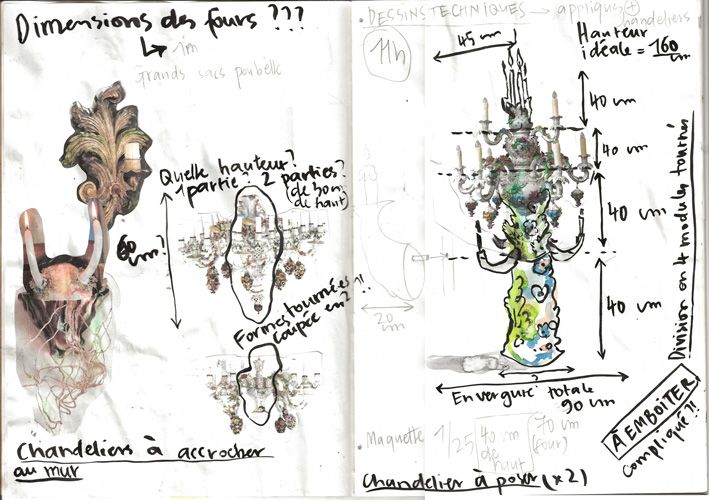 Dimensions des fours ???
↳ 1m
Grands sacs poubelle
Quelle hauteur?
1 partie? 2 parties?
(de bon-
de haut)
60 cm?
Formes tournées
coupée en 2?!
Chandeliers à accrocher
au mur
DESSINS TECHNIQUES → appliques +
chandeliers
11h
45 cm
Hauteur
idéale = 160
cm
40 cm
40 cm
40 cm
40 cm
Division en 4 modules tournés
20
cm
?
Envergure totale
90 cm
À EMBOITER
compliqué?!
Maquette 1/25 40 cm
de
haut
(70 cm
(four)
Chandelier à poser (x2)